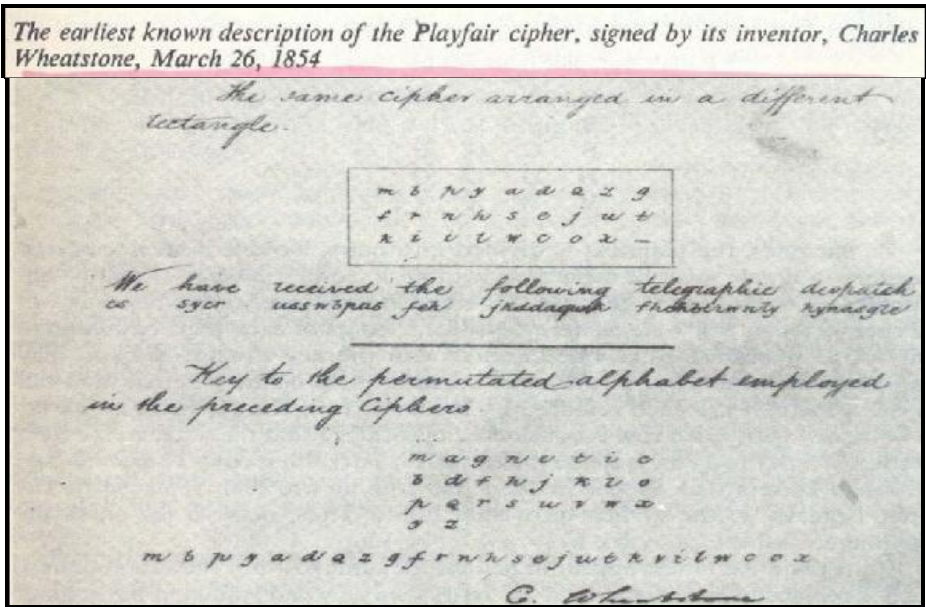 The earliest known description of the Playfair cipher, signed by its inventor, Charles
Wheatstone, March 26, 1854
The same cipher arranged in a different
rectangle.
m b p y a d q z g
f r n h s e j u t
k v i l w c o x –
We have received the following telegraphic despatch
cs sycr
Key to the permutated alphabet employed
in the preceding Ciphers
m a g n e t i c
b d f h j k l o
p q r s u v w x
y z
m b p y a d q z g f r n h s e j u t k v i l w c o x
C. Wheatstone